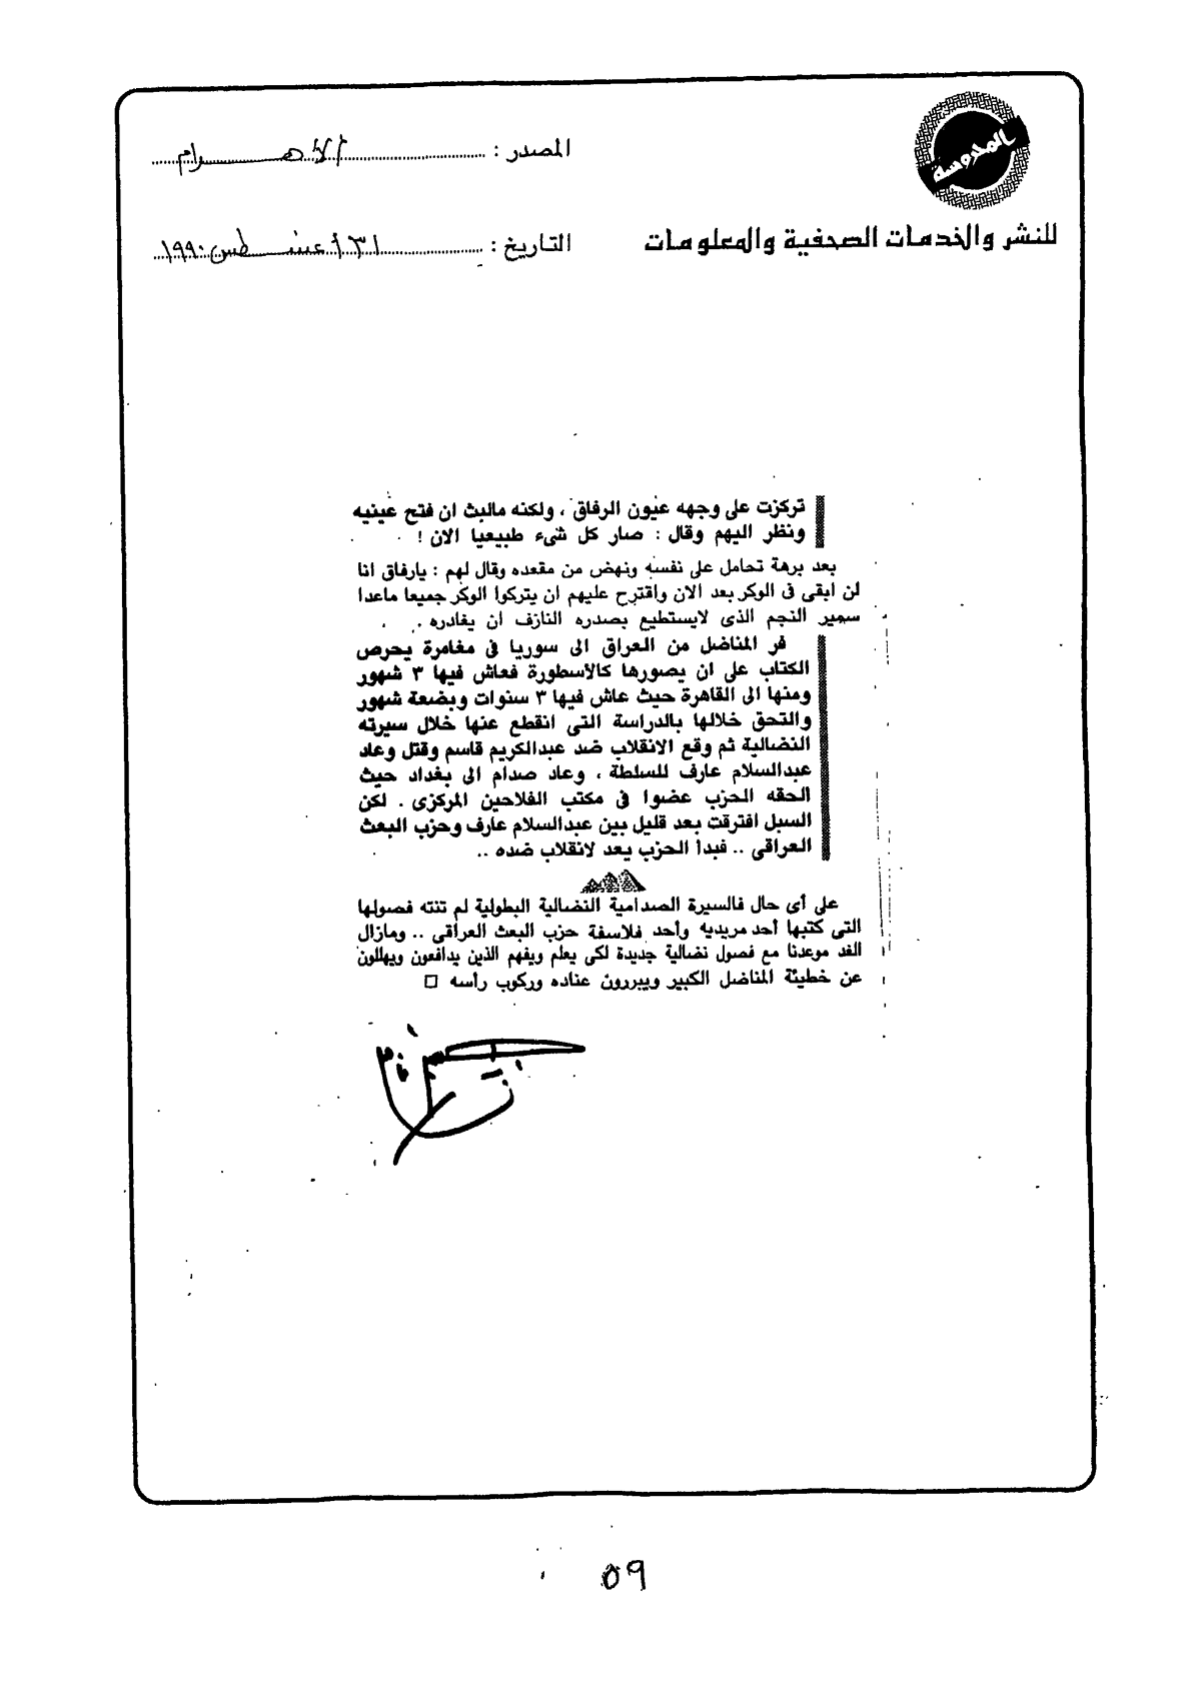 المحروسة
للنشر والخدمات الصحفية والمعلومات
المصدر : الأهرام
التاريخ : ٣١ أغسطس ١٩٩٠
تركزت على وجهه عيون الرفاق ، ولكنه مالبث ان فتح عينيه
ونظر اليهم وقال : صار كل شىء طبيعيا الان !
بعد برهة تحامل على نفسه ونهض من مقعده وقال لهم : يارفاق انا
لن ابقى فى الوكر بعد الان واقترح عليهم ان يتركوا الوكر جميعا ماعدا
سمير النجم الذى لايستطيع بصدره النازف ان يغادره .
فر المناضل من العراق الى سوريا فى مغامرة يحرص
الكتاب على ان يصورها كالاسطورة فعاش فيها ٣ شهور
ومنها الى القاهرة حيث عاش فيها ٣ سنوات وبضعة شهور
والتحق خلالها بالدراسة التى انقطع عنها خلال سيرته
النضالية ثم وقع الانقلاب ضد عبدالكريم قاسم وقتل وعاد
عبدالسلام عارف للسلطة ، وعاد صدام الى بغداد حيث
الحقه الحزب عضوا فى مكتب الفلاحين المركزى . لكن
السبل افترقت بعد قليل بين عبدالسلام عارف وحزب البعث
العراقى .. فبدأ الحزب يعد لانقلاب ضده ..
على أى حال فالسيرة الصدامية النضالية البطولية لم تنته فصولها
التى كتبها أحد مريديه وأحد فلاسفة حزب البعث العراقى .. ومازال
الغد موعدنا مع فصول نضالية جديدة لكى يعلم ويفهم الذين يدافعون ويهللون
عن خطيئة المناضل الكبير ويبررون عناده وركوب رأسه □
٥٩